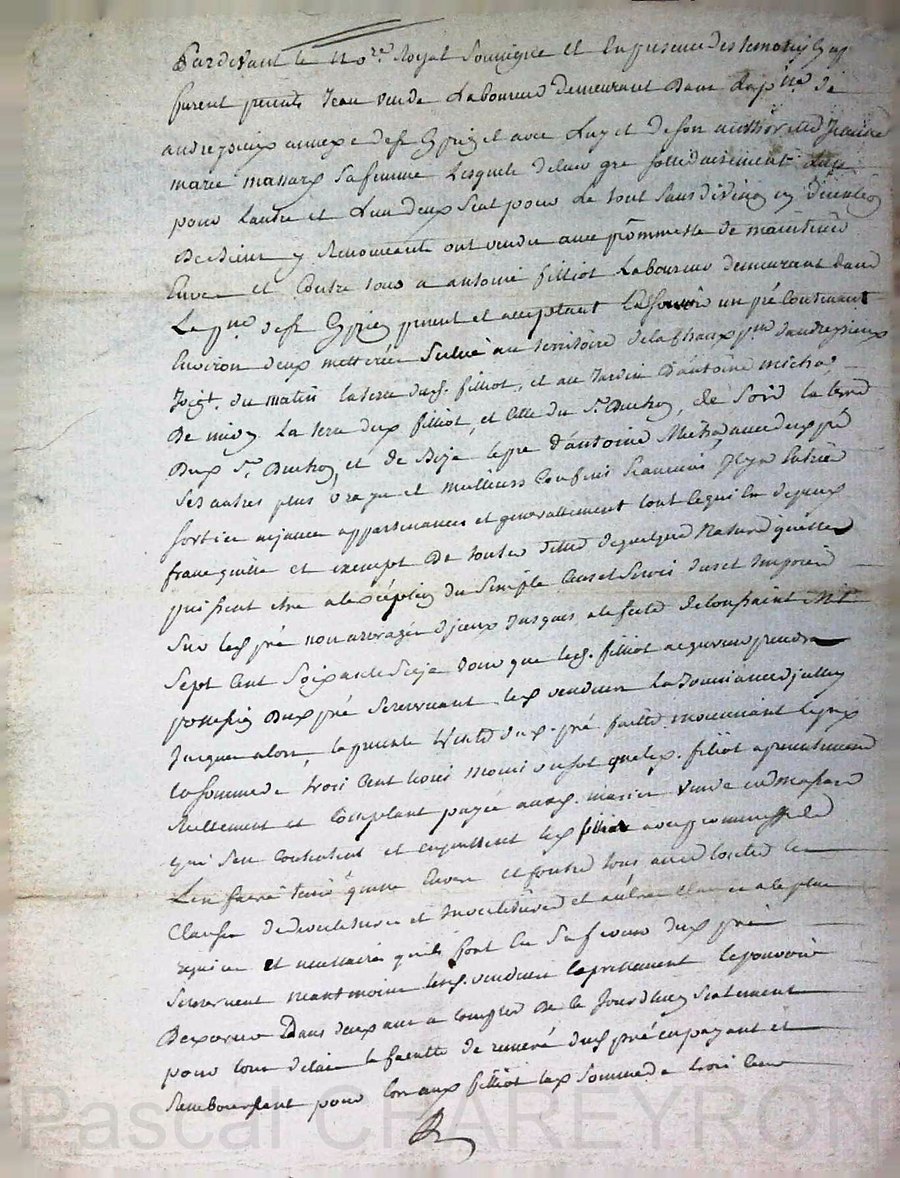 Pardevant le no.re Royal Soussigné et en presence des temoins bas
furent pnts Jean Vende Laboureur demeurant Dans la p.sse de
andrezieux annexe de St Cyprien avec Luy et de son authorité Jeanne
marie massard Sa femme Lesquels de leur gre sollidairement Lun
pour Lautre et Lun deux Seul pour Le tout Sans division ny discution
De Biens y Renonceants ont vendu avec prommesse de maintenir
Envers et Contre tous a antoine filliot Laboureur demeurant dans
La p.sse de St Cyprien present et acceptant un pré Contenant
Environ deux metterées Situé au territoire de la Chaux p.sse d'andrezieux
Joig.t du matin la terre dud. filliot, et au Jardin d'antoine micha,
De midy La terre dud filliot, et Celle du S.r Duchon, de Soir la terre
Dud S.r Duchon et de Bize le pré d'antoine Micha, avec dud pré
Ses autres plus vrays et meilleurs Confins entrée
Sortie aizances appartenances et generallement tout ce qui en depend
franc quitte et exempt De toutes dettes de quelque Nature quelles
puissent etre a lexception du Simple Cens et Servis deu et Imposé
Sur led pré non arreragé Jusques a la fete de toussaint Mil
Sept Cent Soixante Seize Jour que led. filliot acquereur prendra
possession Dud pré Se reservant les vendeurs La Jouissance dicelluy
Jusques alors, la presente Vente dud. pré faitte moyenant le prix
la somme de trois Cent trois livres que led. filliot a presentement
Reellement et Comptant payée auxd. mariés Vende et Massard
qui Sen Contentent et en quittent led filliot avec promesse de
L'en faire tenir quitte Envers et Contre tous avec toutes les
Clauses de devestiture et Investiture et autres Clauses a ce plus
requises et necessaires qu'ils font En Sa faveur dud pré
Se reservent neantmoins lesd. vendeurs Expressement le pouvoir
Dexercer Dans deux ans a Compter De ce Jourdhuy Seulement
pour tout delais la faculté de remeré dud pré en payant et
Remboursant pour lors aud filliot lad Somme de trois Cent
Pascal CHAREYRON